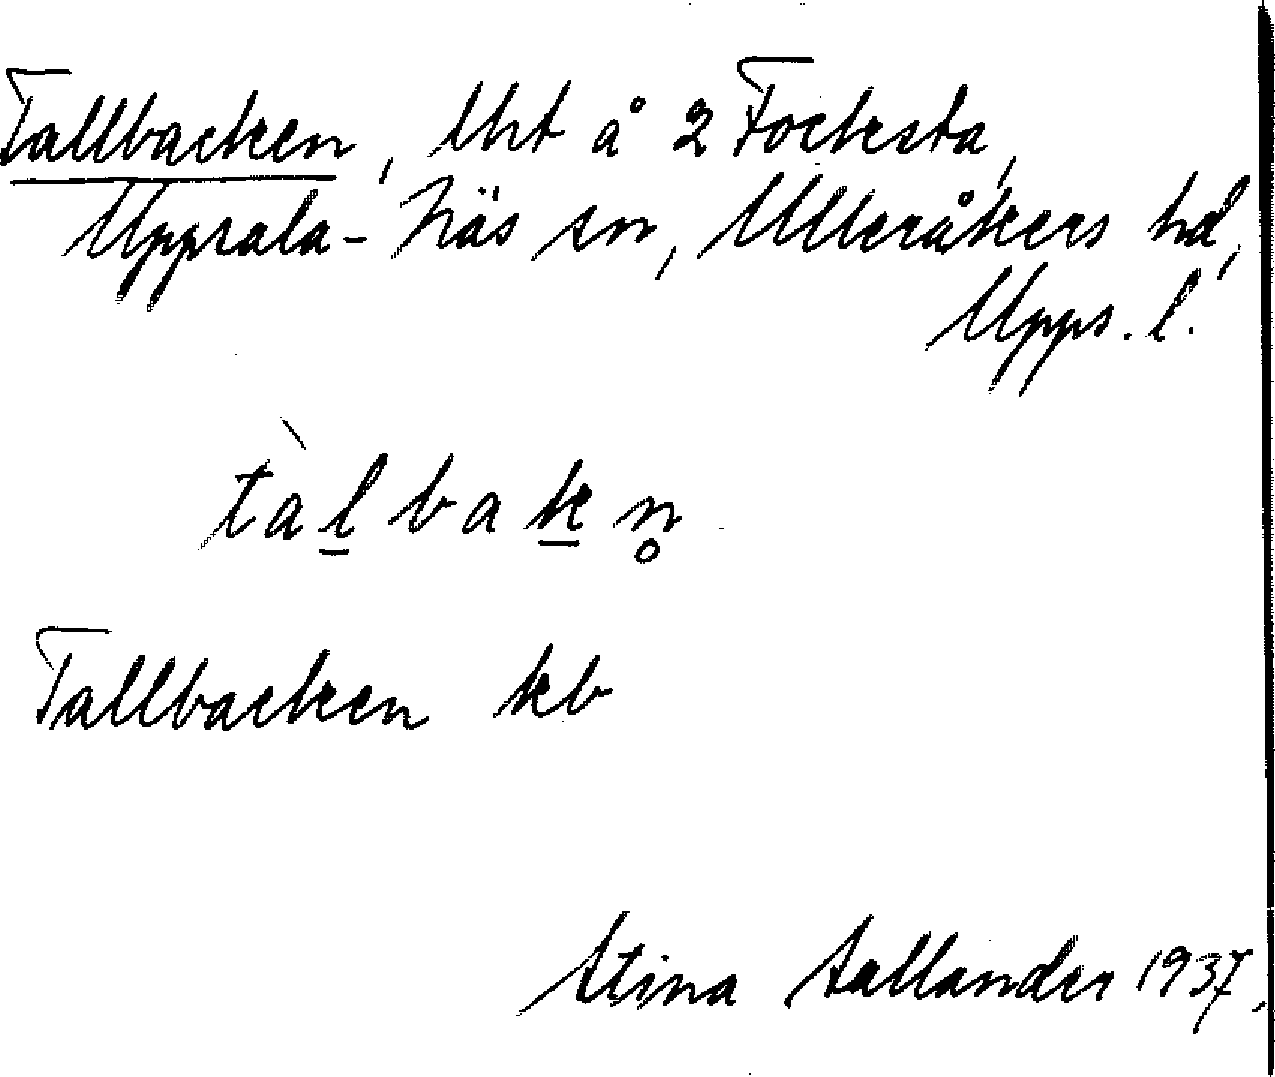 Tallbacken, lht å 2 Focksta,
Uppsala-Näs sn, Ulleråkers hd,
Upps. l.
tàl̠bak̠n̥
Tallbacken kb
Stina Sallander 1937.